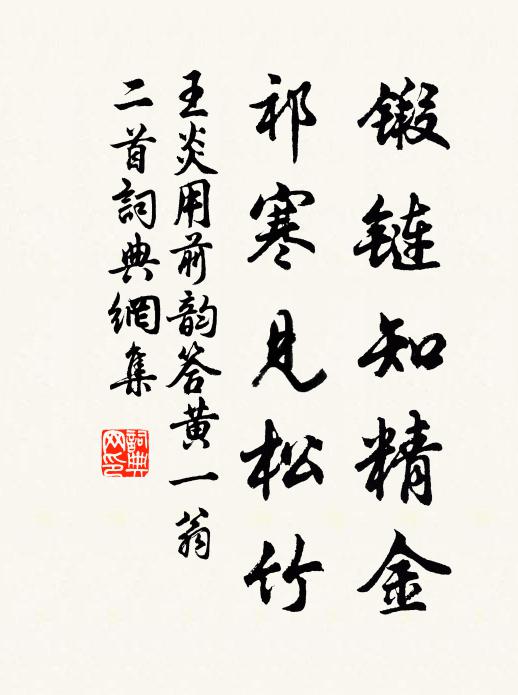 鍛鏈知精金
祁寒見松竹
王炎用前韵答黄一翁
二首詞典網集
詞典
网印